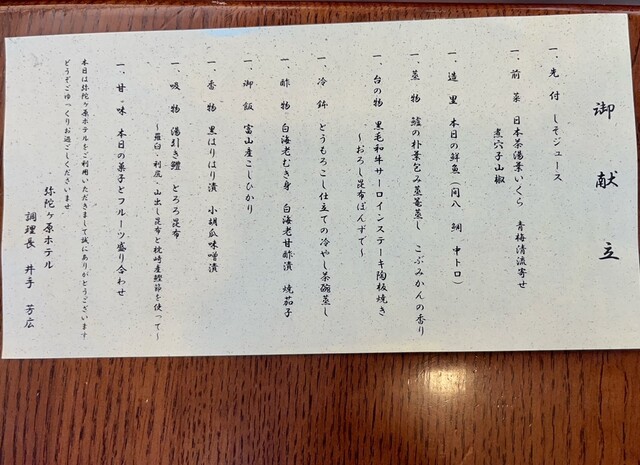 御献立
一、先付 しそジュース
一、前菜 日本茶湯葉いくら 青梅清流寄せ
煮穴子山椒
一、造里 本日の鮮魚(間八 鯛 中トロ)
一、蒸物 鱸の朴葉包み蒸篭蒸し こぶみかんの香り
一、台の物 黒毛和牛サーロインステーキ陶板焼き
～おろし昆布ぽんずで～
一、冷鉢 とうもろこし仕立ての冷やし茶碗蒸し
一、酢物 白海老むき身 白海老甘酢漬 焼茄子
一、御飯 富山産こしひかり
一、香物 黒はりはり漬 小胡瓜味噌漬
一、吸物 湯引き鱧 とろろ昆布
～羅臼・利尻・山出し昆布と枕崎産鰹節を使って～
一、甘味 本日の菓子とフルーツ盛り合わせ
本日は弥陀ヶ原ホテルをご利用いただきまして誠にありがとうございます
どうぞごゆっくりお過ごしくださいませ
弥陀ヶ原ホテル
調理長 井手 芳広